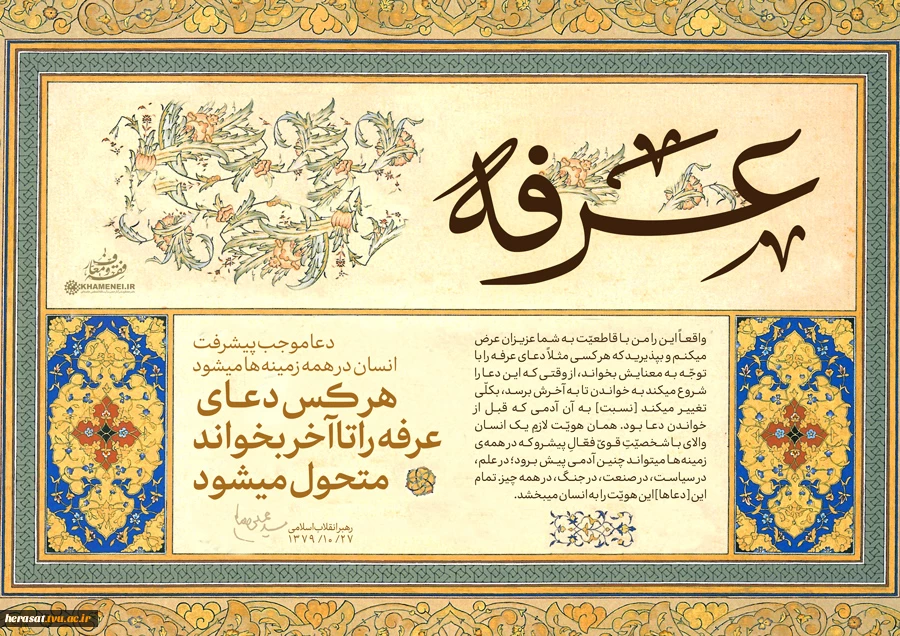 عرفه
فقه و معارف
KHAMENEI.IR
واقعاً این را من با قاطعیّت به شما عزیزان عرض
میکنم و بپذیرید که هر کسی مثلاً دعای عرفه را با
توجّه به معنایش بخواند، از وقتی که این دعا را
شروع میکند به خواندن تا به آخرش برسد، بکلّی
تغییر میکند [نسبت] به آن آدمی که قبل از
خواندن دعا بود. همان هویّت لازمِ یک انسان
والای با شخصیّتِ قویّ فعّالِ پیشرو که در همه‌ی
زمینه‌ها میتواند چنین آدمی پیش برود؛ در علم،
در سیاست، در صنعت، در جنگ، در همه چیز. تمام
این [دعاها] این هویّت را به انسان میبخشد.
دعا موجب پیشرفت
انسان در همه زمینه‌ها میشود
هر کس دعـای
عرفه را تا آخر بخواند
متحول میشود
رهبر انقلاب اسلامی
۱۳۷۹/۱۰/۲۷
herasat.tvu.ac.ir